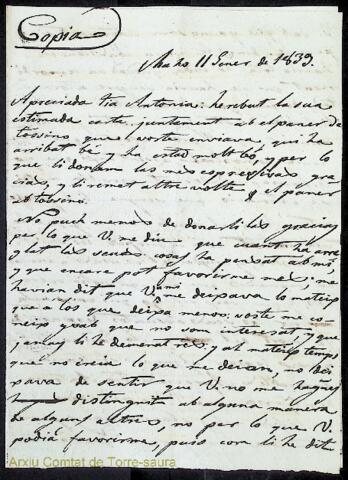 Copia
Maho 11 Gener de 1839.
Apreciada tia Antonia: he rebut la sua
estimada carta juntement ab el paner de
tossino que voste enviava, qui ha
arribat bé y ha estad molt bó, y per lo
que li donam las mes expresivas gra-
cias, y li remet altre volta el paner
de tossino.
No puch menos de donarli las gracias
per lo que V. me diu que cuant ha arre
glat las seuas cosas ha pensat ab mi
y que encare pot favorirme mes; me
havian dit que V. me deixava lo mateix
que a los que deixa menos: voste me co-
neix y sab que no som interesat, y que
jamay li he demenat res; y al mateix temps
que no creia lo que me deian, no dei-
xava de sentir que V. no me hagues
distinguit ab alguna manera
de alguns altres, no per lo que V.
podia favorirme, puis com li he dit
Arxiu Comtat de Torre-saura